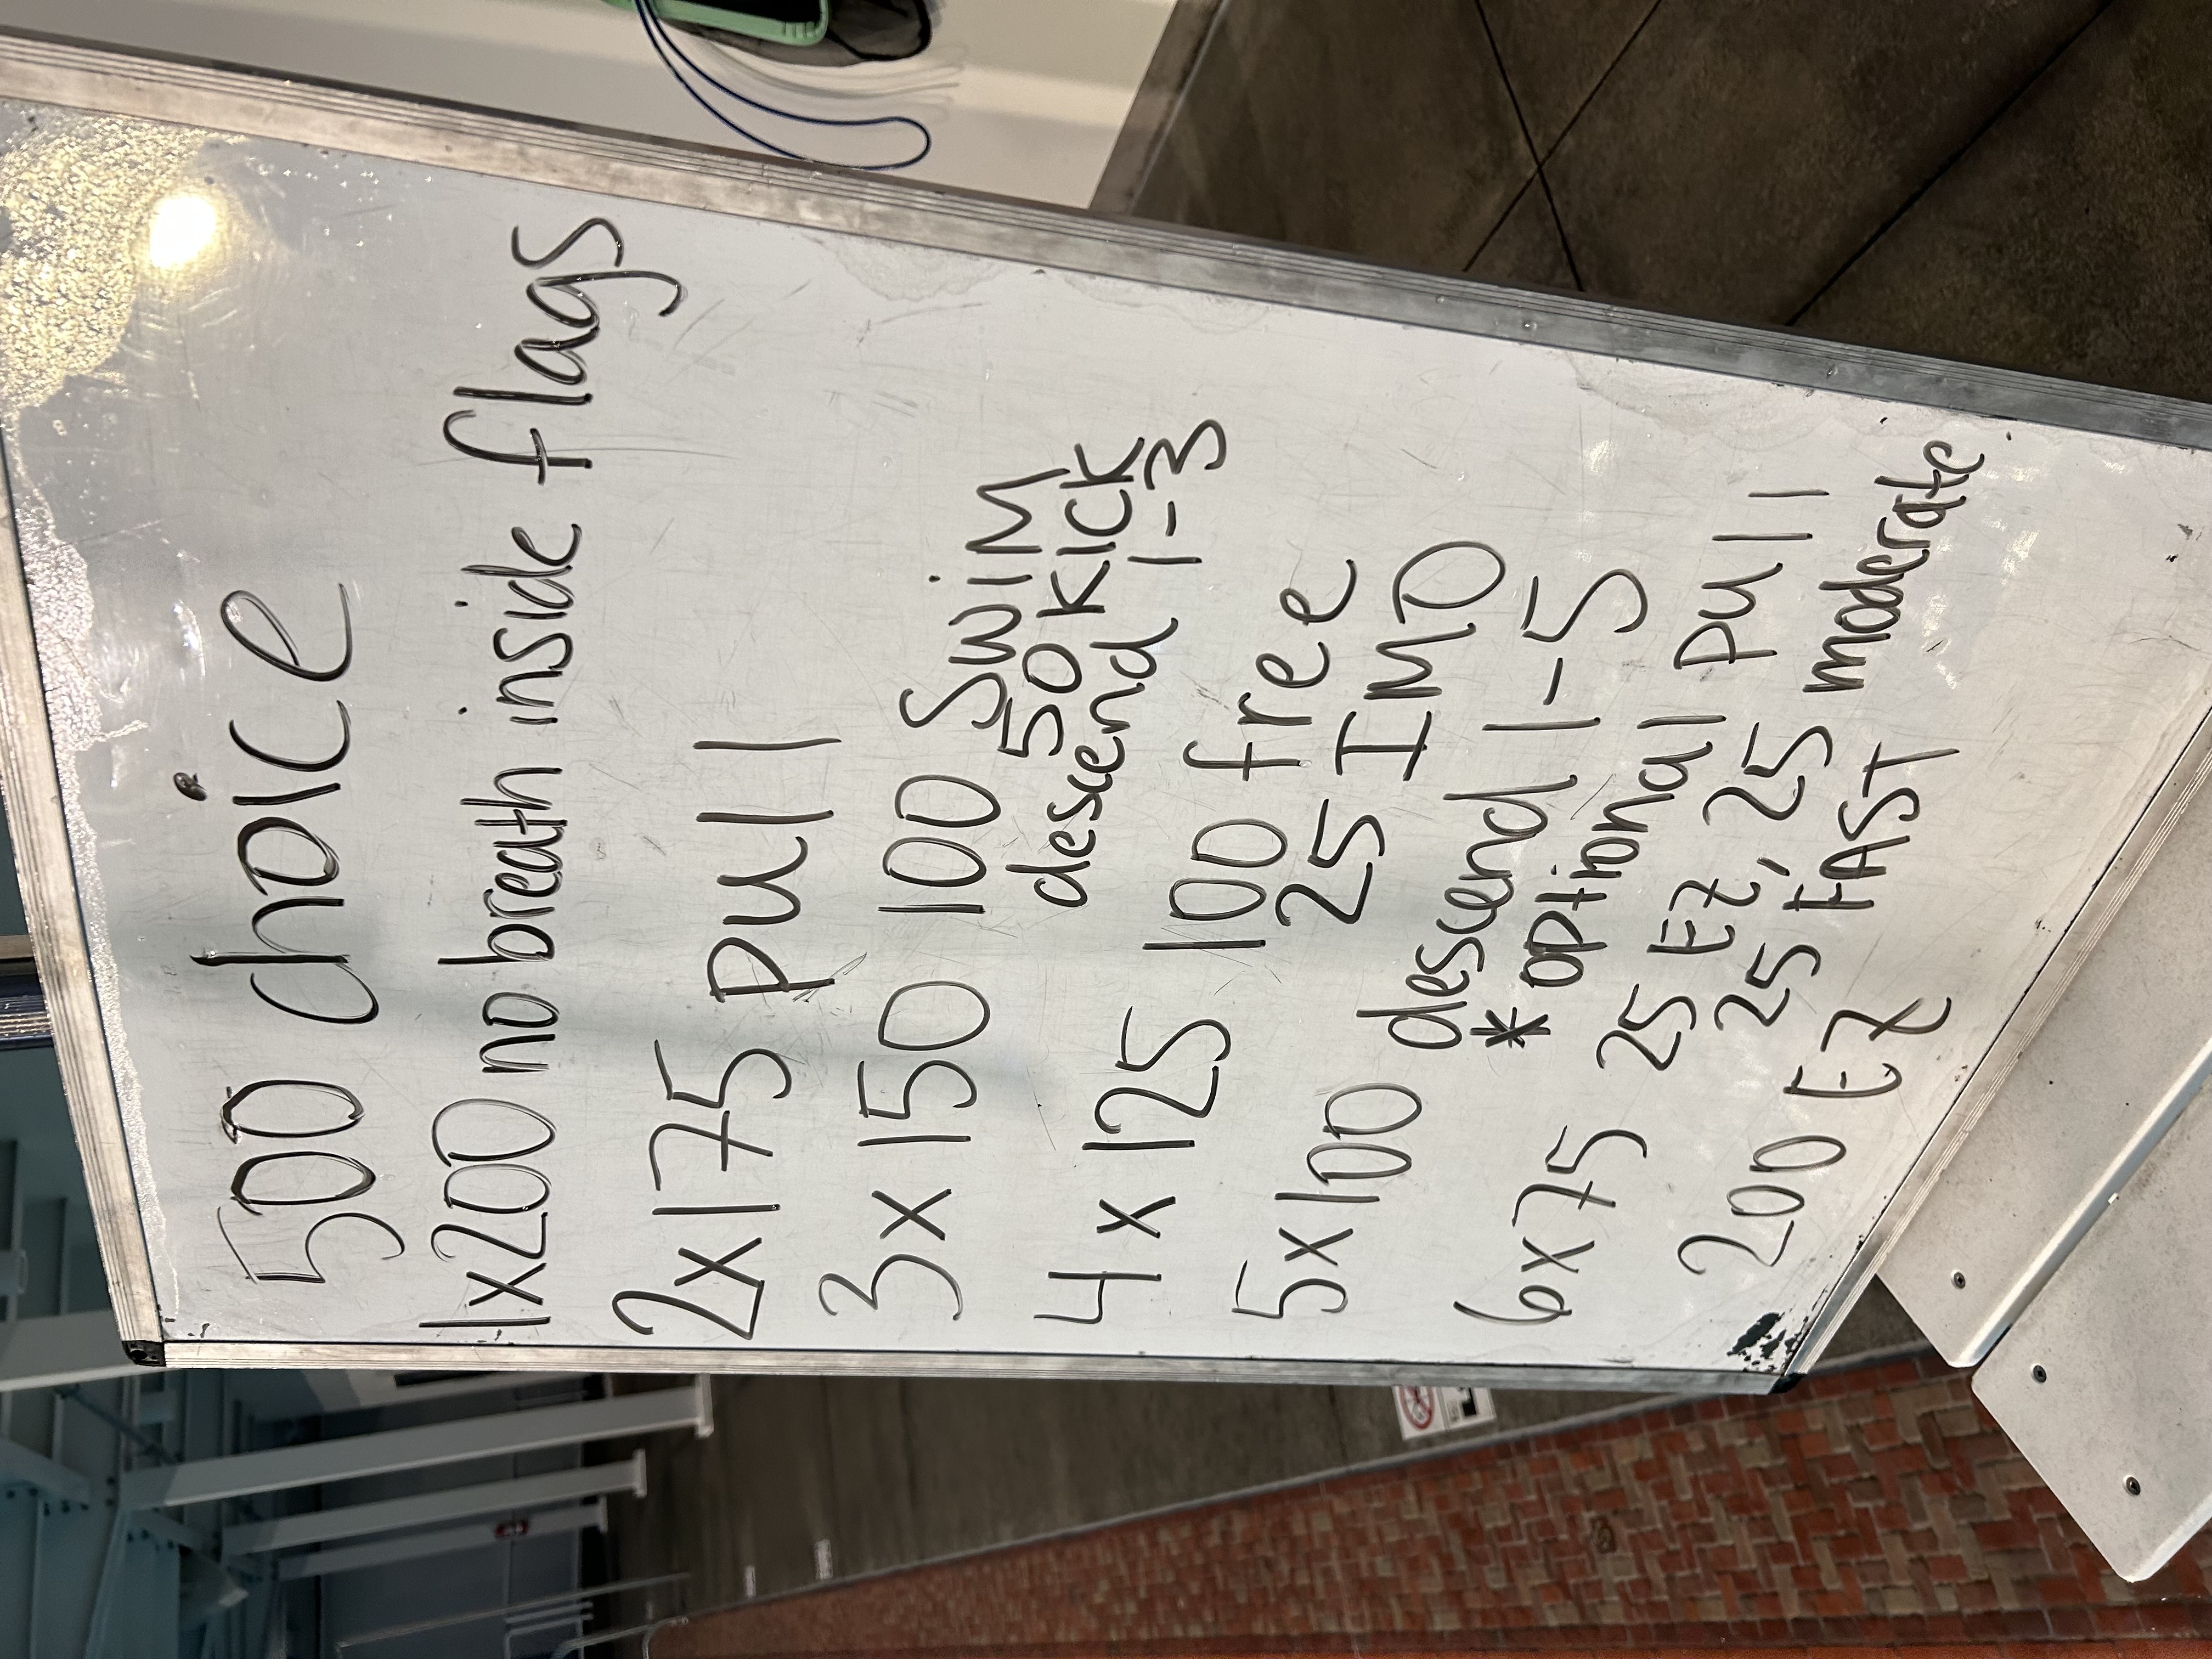 500 choice
1x200 no breath inside flags
2x175 pull
3x150 100 swim
50 kick
descend 1-3
4x125 100 free
25 IMO
5x100 descend 1-5
* optional pull
6x75 25 EZ, 25 moderate
25 FAST
200 EZ